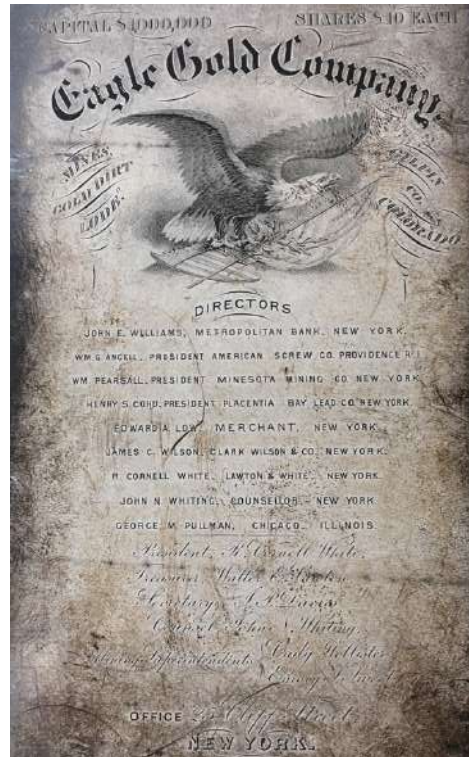 CAPITAL $1,000,000 SHARES $10 EACH
Eagle Gold Company.
MINES,
GOLD DIRT
LODE.
GILPIN
CO.
COLORADO
DIRECTORS
JOHN E. WILLIAMS, METROPOLITAN BANK, NEW YORK.
WM G. ANGELL, PRESIDENT AMERICAN SCREW CO. PROVIDENCE R.I.
WM PEARSALL, PRESIDENT MINESOTA MINING CO. NEW YORK
HENRY S. PRESIDENT PLACENTIA BAY LEAD CO. NEW YORK.
EDWARD A. LOW, MERCHANT, NEW YORK.
JAMES C. WILSON, CLARK WILSON & CO., NEW YORK.
R. CORNELL WHITE, LAWTON & WHITE, NEW YORK.
JOHN N. WHITING, COUNSELLOR, NEW YORK.
GEORGE M. PULLMAN, CHICAGO, ILLINOIS.
President, R. Cornell White
Treasurer, Walter E. Lawton
Secretary, Davis
Counsel, John N. Whiting,
Mining Superintendents
OFFICE Cliff Street
NEW YORK.